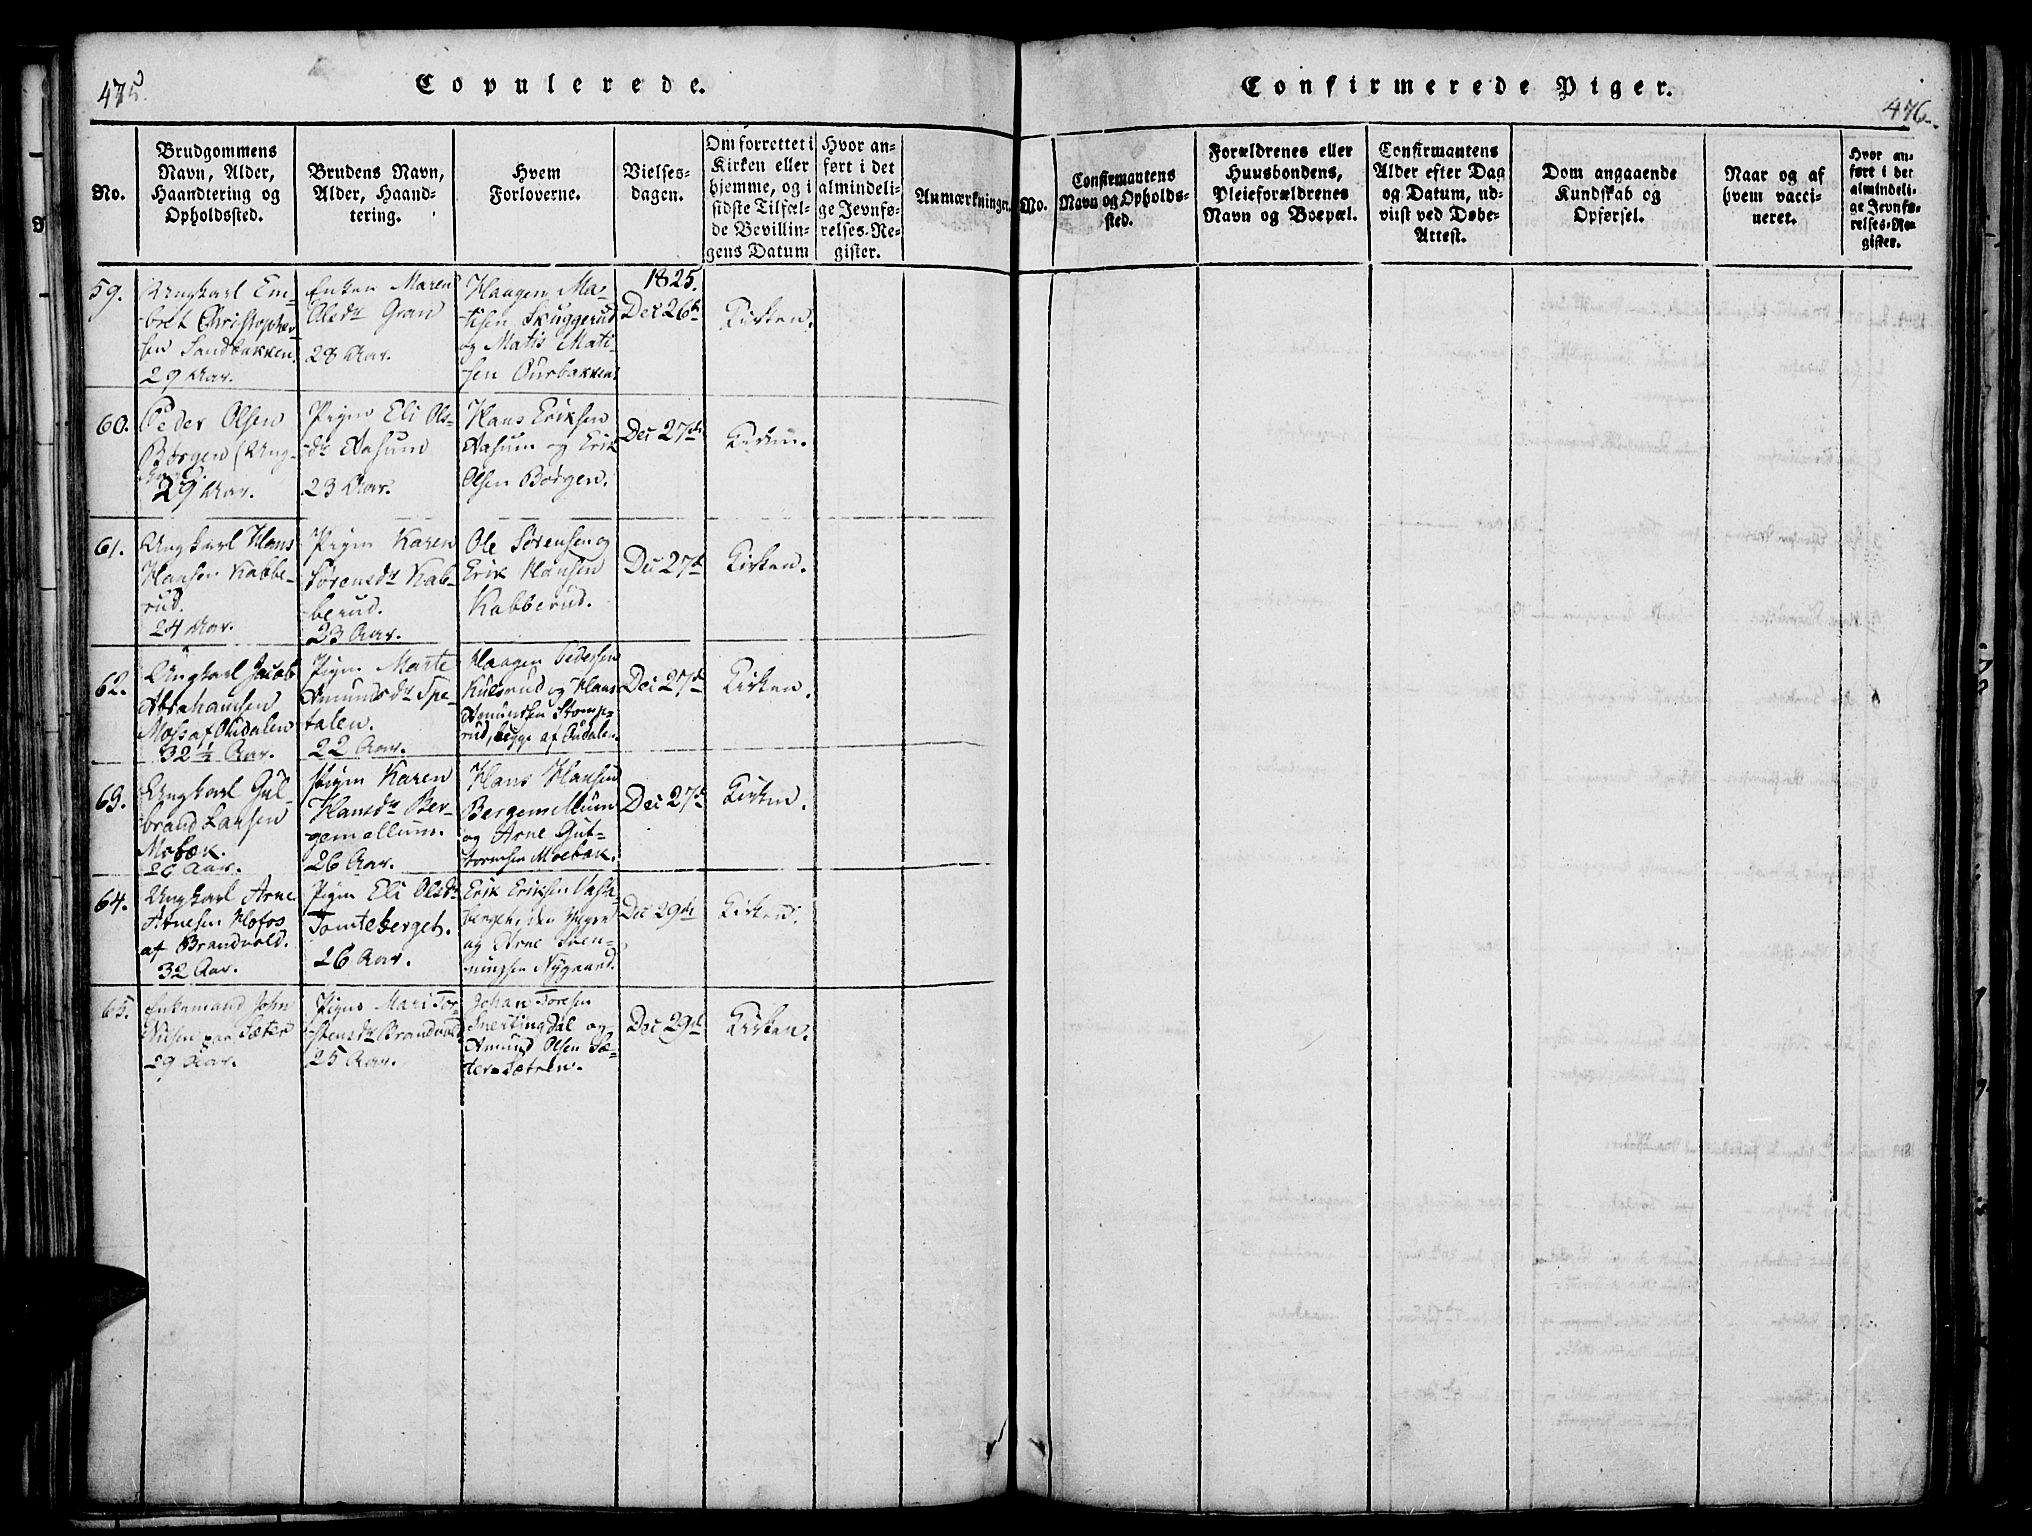 475.
Copulerede.
No.
Brudgommens
Navn, Alder,
Haandtering og
Opholdssted.
Brudens Navn,
Alder, Haand-
tering.
Hvem
Forloverne.
Vielses-
dagen.
Om forrettet i
Kirken eller
hjemme, og i
sidste Tilfæl-
de Bevillin-
gens Datum
Hvor an-
ført i det
almindeli-
ge Jevnfø-
relses-Re-
gister.
Anmærkninger.
59.
Ungkarl Em-
bret Christopher-
sen Sandbakken,
29 Aar.
Enken Maren
Olsdr Gran
28 Aar.
Haagen Ma-
tisen Skuggerud
og Matis Mati-
sen Burbakken.
1825.
Dec 26de
Kirken.
60.
Peder Olsen
Børgen (Ung-
karl)
29 Aar.
Pigen Eli Ols-
dr Aasum
23 Aar.
Hans Eriksen
Aasum og Erik
Olsen Børgen.
Dec 27de
Kirken.
61.
Ungkarl Hans
Hansen Kabbe-
rud.
24 Aar.
Pigen Karen
Sørensdr Kab-
berud.
23 Aar.
Ole Sørensen og
Erik Hansen
Kabberud.
Dec 27de
Kirken.
62.
Ungkarl Jacob
Abrahamsen
Moss af Oudalen
32 ½ Aar.
Pigen Marte
Amundsdr Spe-
talen.
22 Aar.
Haagen Pedersen
Kulsrud og Hans
Amundsen Stomp-
rud, begge af Oudalen.
Dec 27de
Kirken.
63.
Ungkarl Gul-
brand Larsen
Mobæk.
26 Aar.
Pigen Karen
Hansdr Ber-
gemellum.
26 Aar.
Hans Hansen
Bergemellum
og Arne Gut-
tormsen Moebæk.
Dec 27de
Kirken.
64.
Ungkarl Arne
Arnesen Hofos
af Brandvold.
32 Aar.
Pigen Eli Olsdr
Tomteberget.
26 Aar.
Erik Eriksen
berget, den Yngre
og Arne Sven-
ningsen Nygaard.
Dec 29de
Kirken.
65.
Enkemand John
Nilsen paa Sæter
29 Aar.
Pigen Mari Tor-
stensdr Brandvold
25 Aar.
Johan Toresen
Snertingdal og
Amund Olsen Sæ-
ter-Sætren.
Dec 29de
Kirken.
Confirmerede Piger.
476.
No.
Confirmantens
Navn og Opholds-
sted.
Forældrenes eller
Huusbondens,
Pleieforældrenes
Navn og Boepæl.
Confirmantens
Alder efter Dag
og Datum, ud-
viist ved Døbe-
Attest.
Dom angaaende
Kundskab og
Opførsel.
Naar og af
hvem vacci-
neret.
Hvor an-
ført i det
almindeli-
ge Jevnfø-
relses-Re-
gister.